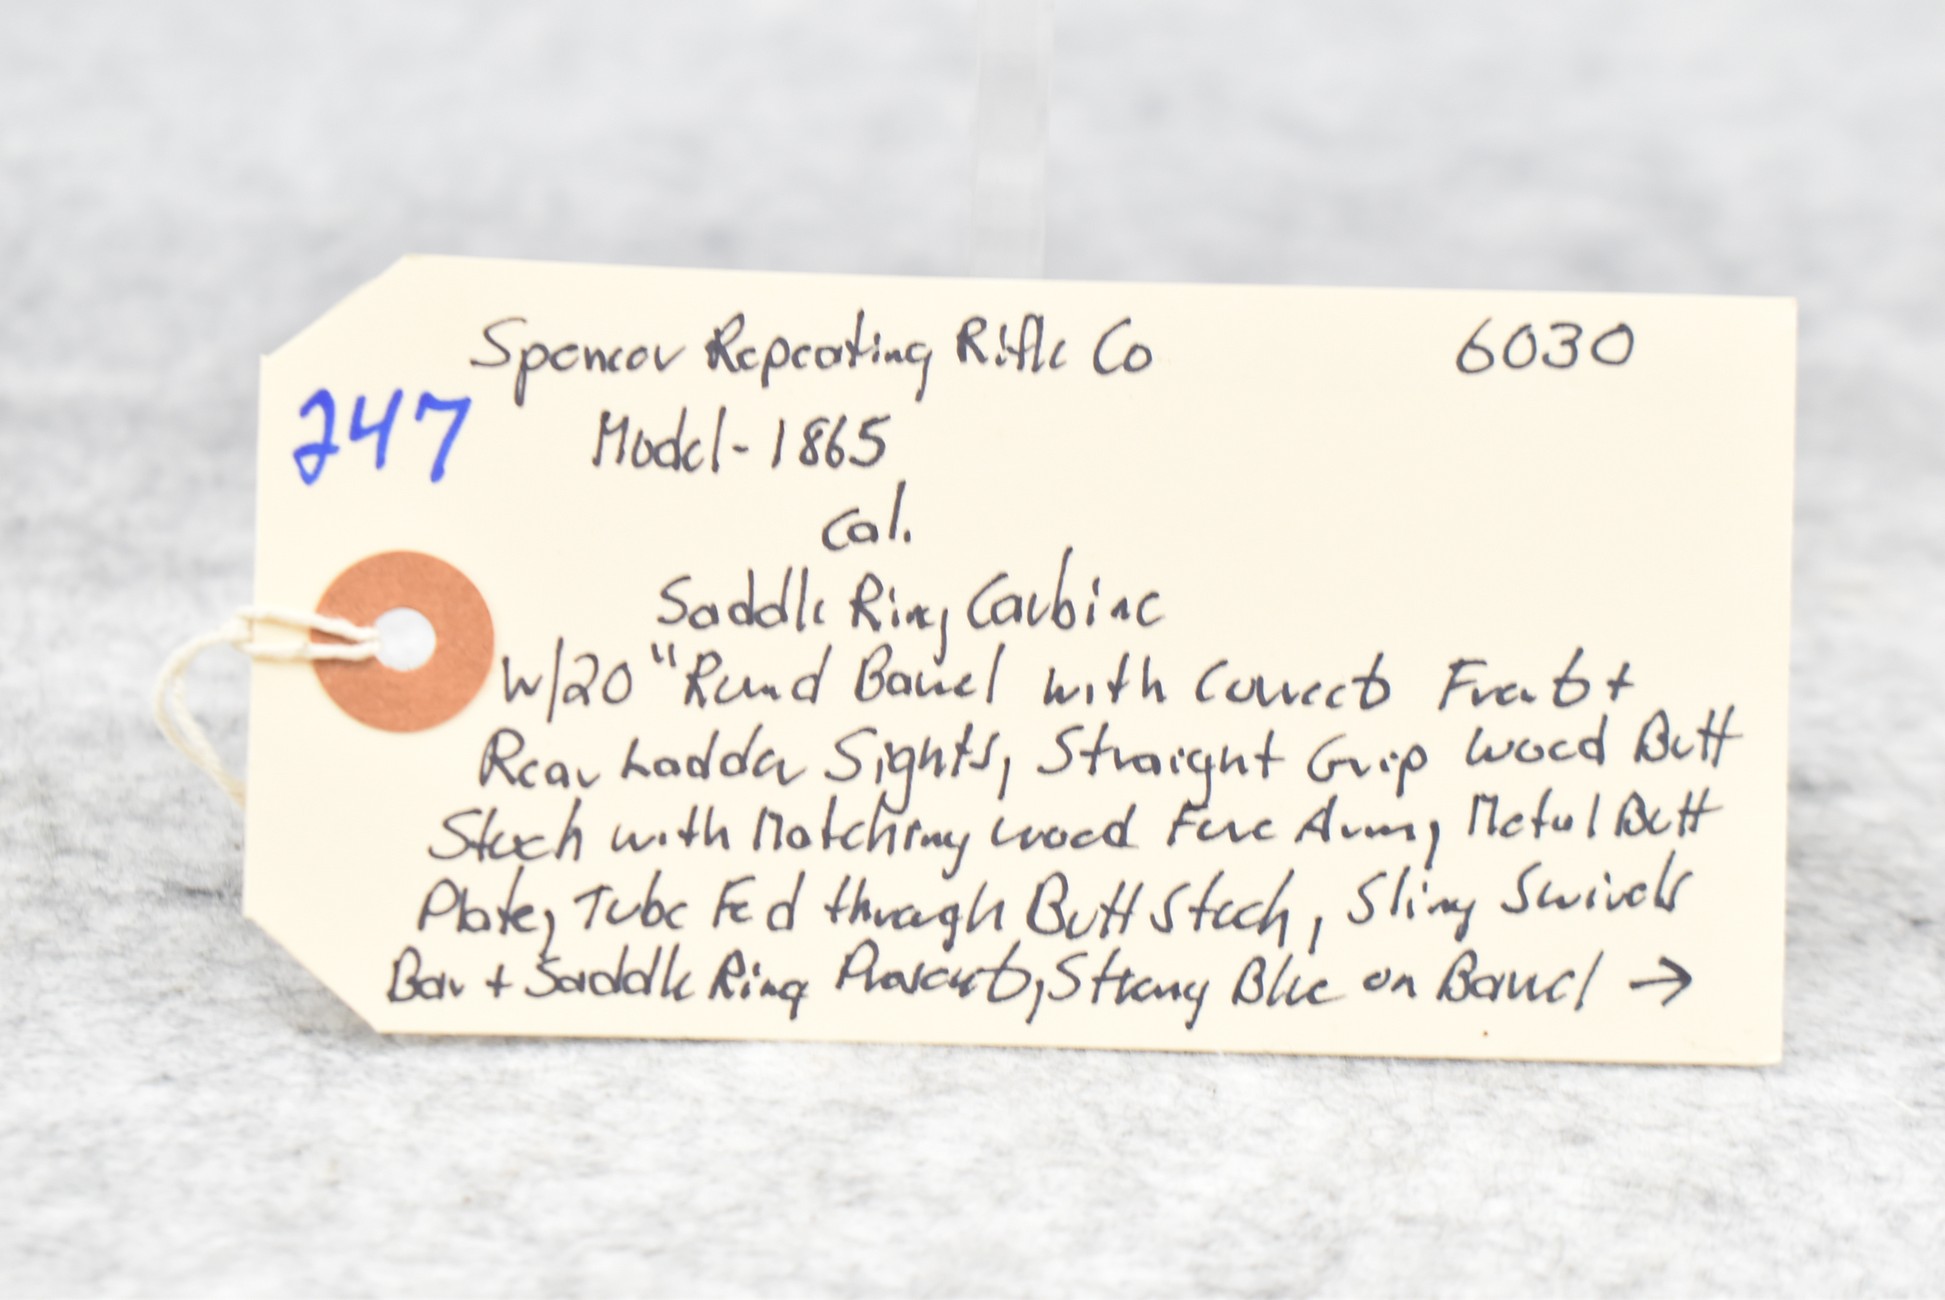 Spencer Repeating Rifle Co 6030
247
Model-1865
Cal.
Saddle Ring Carbine
W/20" Round Barrel with Correct Front +
Rear Ladder Sights, Straight Grip Wood Butt
Stock with Matching Wood Fore Arm, Metal Butt
Plate, Tube Fed through Butt Stock, Sling Swivels
Bar + Saddle Ring Present, Strong Blue on Barrel →